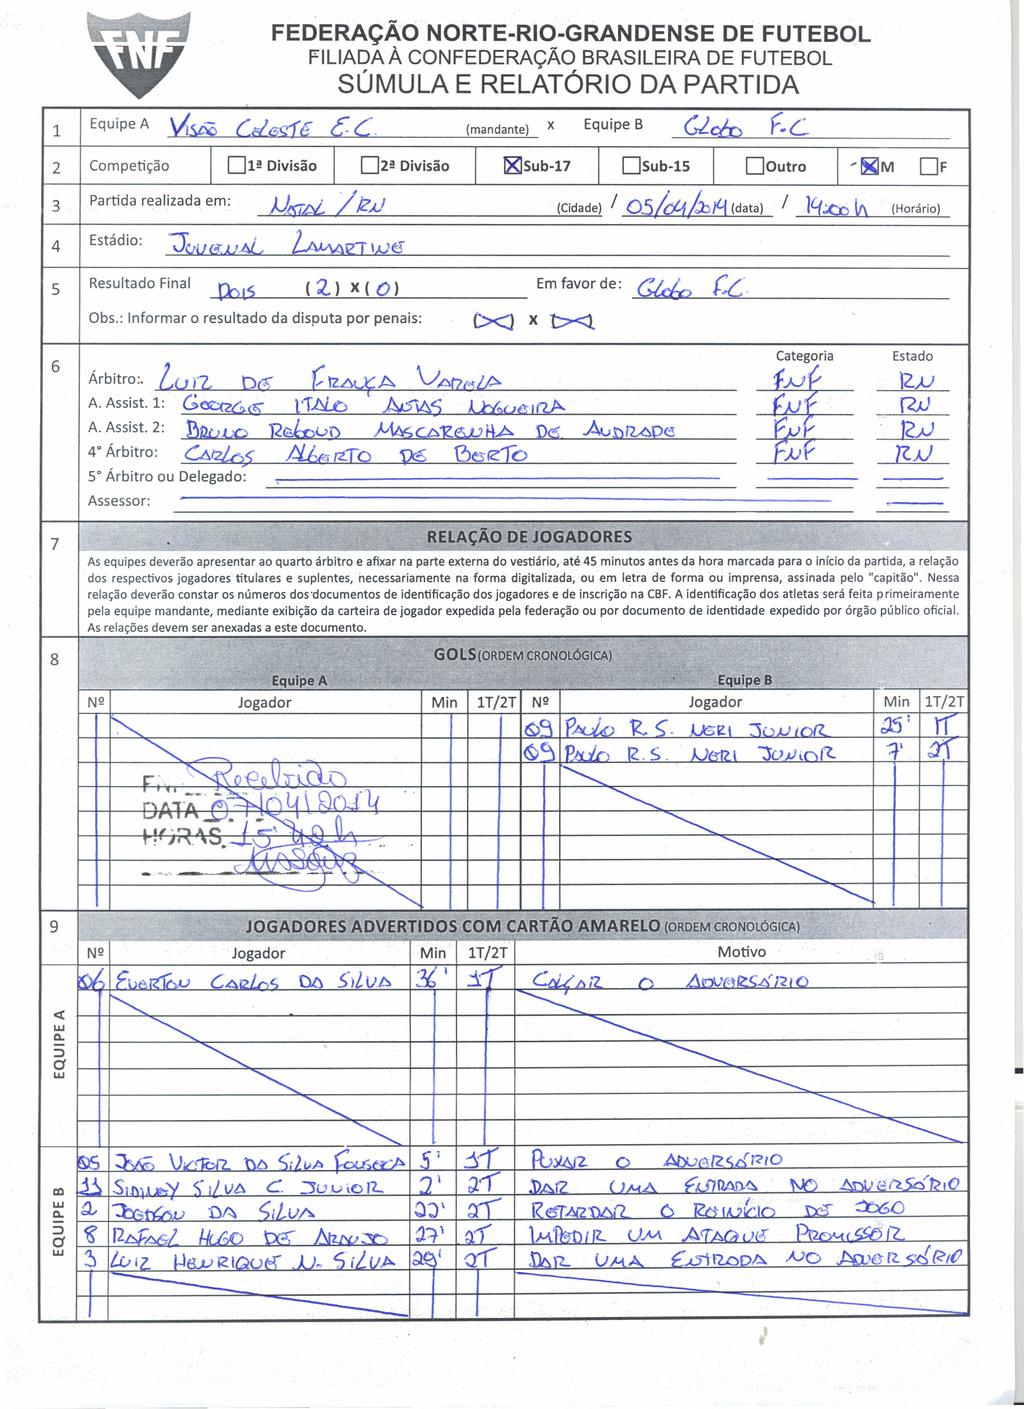 FNF
FEDERAÇÃO NORTE-RIO-GRANDENSE DE FUTEBOL
FILIADA À CONFEDERAÇÃO BRASILEIRA DE FUTEBOL
SÚMULA E RELATÓRIO DA PARTIDA
1 Equipe A VISÃO CELESTE E.C. (mandante) x Equipe B GLOBO F.C
2 Competição 1ª Divisão 2ª Divisão Sub-17 Sub-15 Outro M F
3 Partida realizada em: NATAL / RN (Cidade) / 05/04/2014 (data) / 14:00 h (Horário)
4 Estádio: JUVENAL LAMARTINE
5 Resultado Final DOIS (2) X (0) Em favor de: GLOBO F.C.
Obs.: Informar o resultado da disputa por penais: (X) X (X)
6 Categoria Estado
Árbitro: LUIZ DE FRANÇA VARELA FNF RN
A. Assist. 1: GEORGE ITALO ANTAS NOGUEIRA FNF RN
A. Assist. 2: BRUNO REBOUD MASCARENHA DE ANDRADE FNF RN
4° Árbitro: CARLOS ALBERTO DE BERTO FNF RN
5° Árbitro ou Delegado:
Assessor:
7 RELAÇÃO DE JOGADORES
As equipes deverão apresentar ao quarto árbitro e afixar na parte externa do vestiário, até 45 minutos antes da hora marcada para o início da partida, a relação
dos respectivos jogadores titulares e suplentes, necessariamente na forma digitalizada, ou em letra de forma ou imprensa, assinada pelo "capitão". Nessa
relação deverão constar os números dos documentos de identificação dos jogadores e de inscrição na CBF. A identificação dos atletas será feita primeiramente
pela equipe mandante, mediante exibição da carteira de jogador expedida pela federação ou por documento de identidade expedido por órgão público oficial.
As relações devem ser anexadas a este documento.
8 GOLS (ORDEM CRONOLÓGICA)
Equipe A Equipe B
Nº Jogador Min 1T/2T Nº Jogador Min 1T/2T
09 PAULO R. S. NERI JUNIOR 25' 1T
09 PAULO R. S. NERI JUNIOR 7' 2T
Recebido
DATA 07/04/2014
HORAS 15:40 h
9 JOGADORES ADVERTIDOS COM CARTÃO AMARELO (ORDEM CRONOLÓGICA)
Nº Jogador Min 1T/2T Motivo
EQUIPE A
06 EVERTON CARLOS DA SILVA 36' 1T CALÇAR O ADVERSÁRIO
EQUIPE B
05 JOÃO VICTOR DA SILVA FONSECA 5' 1T PUXAR O ADVERSÁRIO
11 SIDNEY SILVA C. JUNIOR 2' 2T DAR UMA ENTRADA NO ADVERSÁRIO
2 JOEDSON DA SILVA 22' 2T RETARDAR O REINÍCIO DE JOGO
8 RAFAEL HUGO DE ARAUJO 27' 2T IMPEDIR UM ATAQUE PROMISSOR
3 LUIZ HENRIQUE N. SILVA 29' 2T DAR UMA ENTRADA NO ADVERSÁRIO